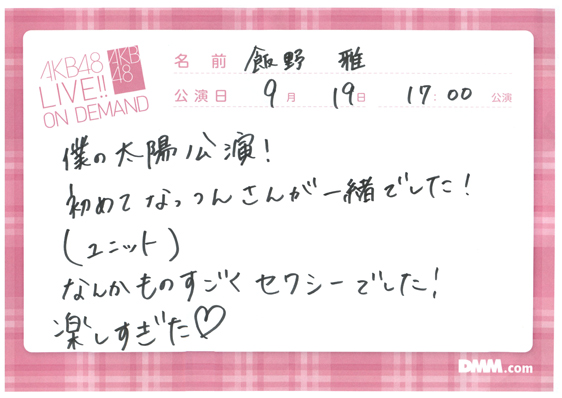 AKB48
LIVE!!
ON DEMAND
AKB
48
名 前 飯野 雅
公演日 9月 19日 17:00 公演
僕の太陽公演!
初めてなっつんさんが一緒でした!
(ユニット)
なんかものすごくセクシーでした!
楽しすぎた♡
DMM.com